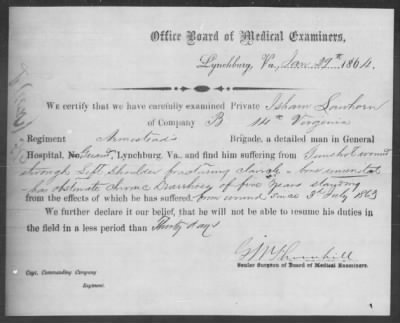 Office Board of Medical Examiners,
Lynchburg, Va., Jan 29th 1864.
We certify that we have carefully examined Private Isham Lawhorn
of Company B 14th Virginia
Regiment Armestead's Brigade, a detailed man in General
Hospital, No. , Lynchburg, Va., and find him suffering from Gunshot wound
through Left Shoulder fracturing clavicle &
has obstinate chronic Diarrhoea of five years standing
from the effects of which he has suffered, from wound since 3rd July 1863
We further declare it our belief, that he will not be able to resume his duties in
the field in a less period than Thirty days
Senior Surgeon of Board of Medical Examiners.
Capt. Commanding Company
Regiment.